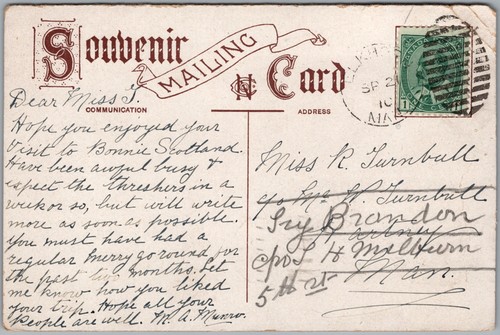 Souvenir
MAILING
Card
COMMUNICATION
ADDRESS
Dear Miss T.
Hope you enjoyed your
visit to Bonnie Scotland.
Have been awful busy &
expect the threshers in a
week or so, but will write
more as soon as possible.
You must have had a
regular merry go round for
the past months. Let
me know how you liked
your trip. Hope all your
people are well. M. A. Munro.
SP 2
10
MAN
1
Miss R. Turnbull
c/o W. Turnbull
Brandon
Man.
5th St